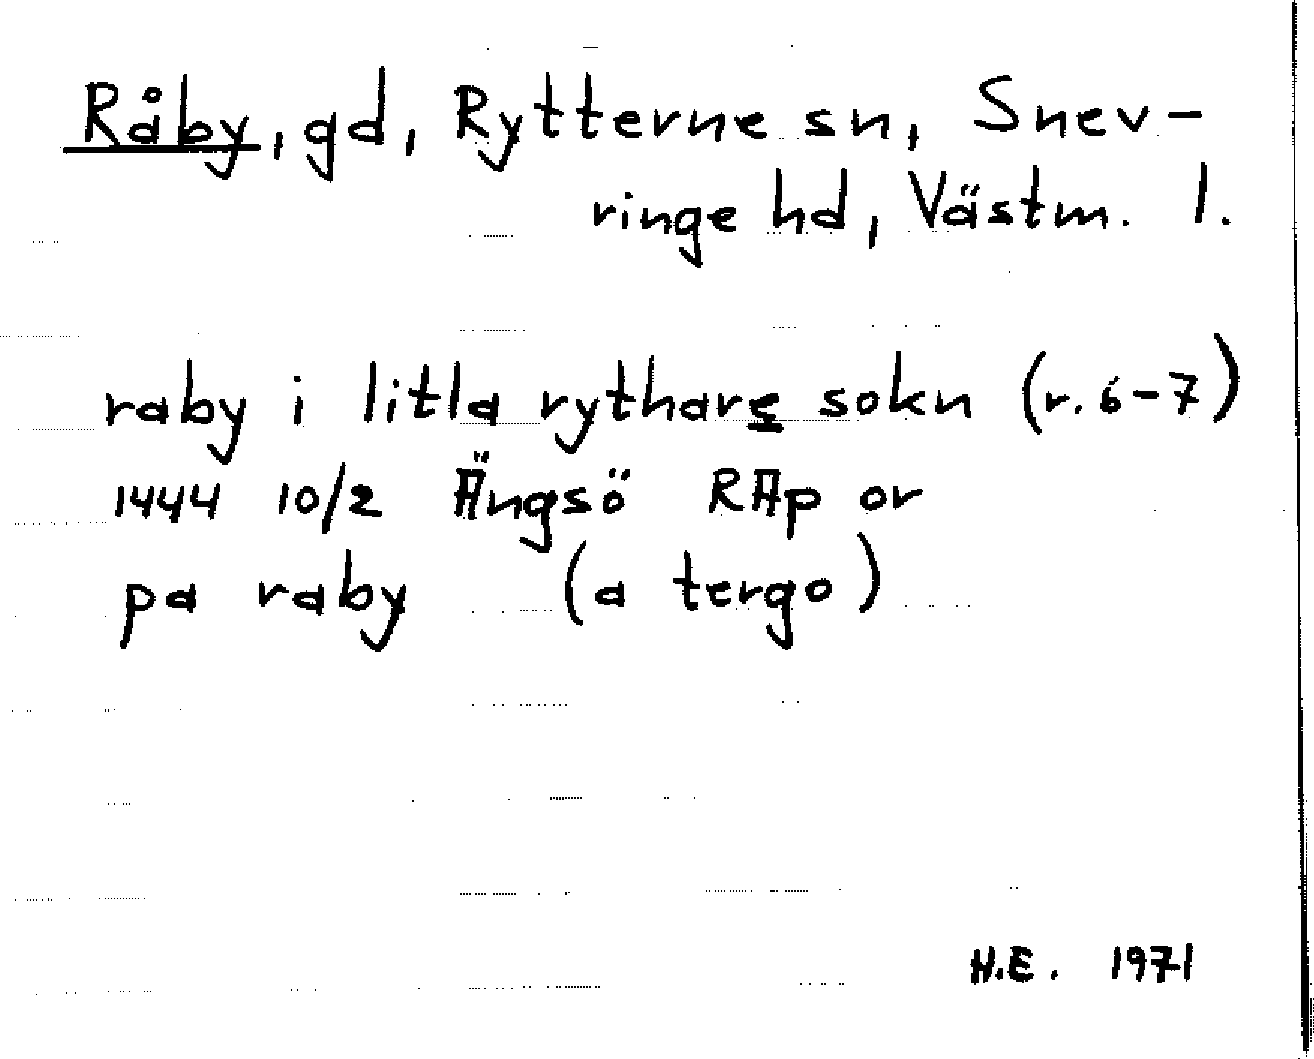 Råby, gd, Rytterne sn, Snev-
ringe hd, Västm. l.
raby i litla rythare sokn (r. 6-7)
1444 10/2 Ängsö RAp or
pa raby (a tergo)
H.E. 1971